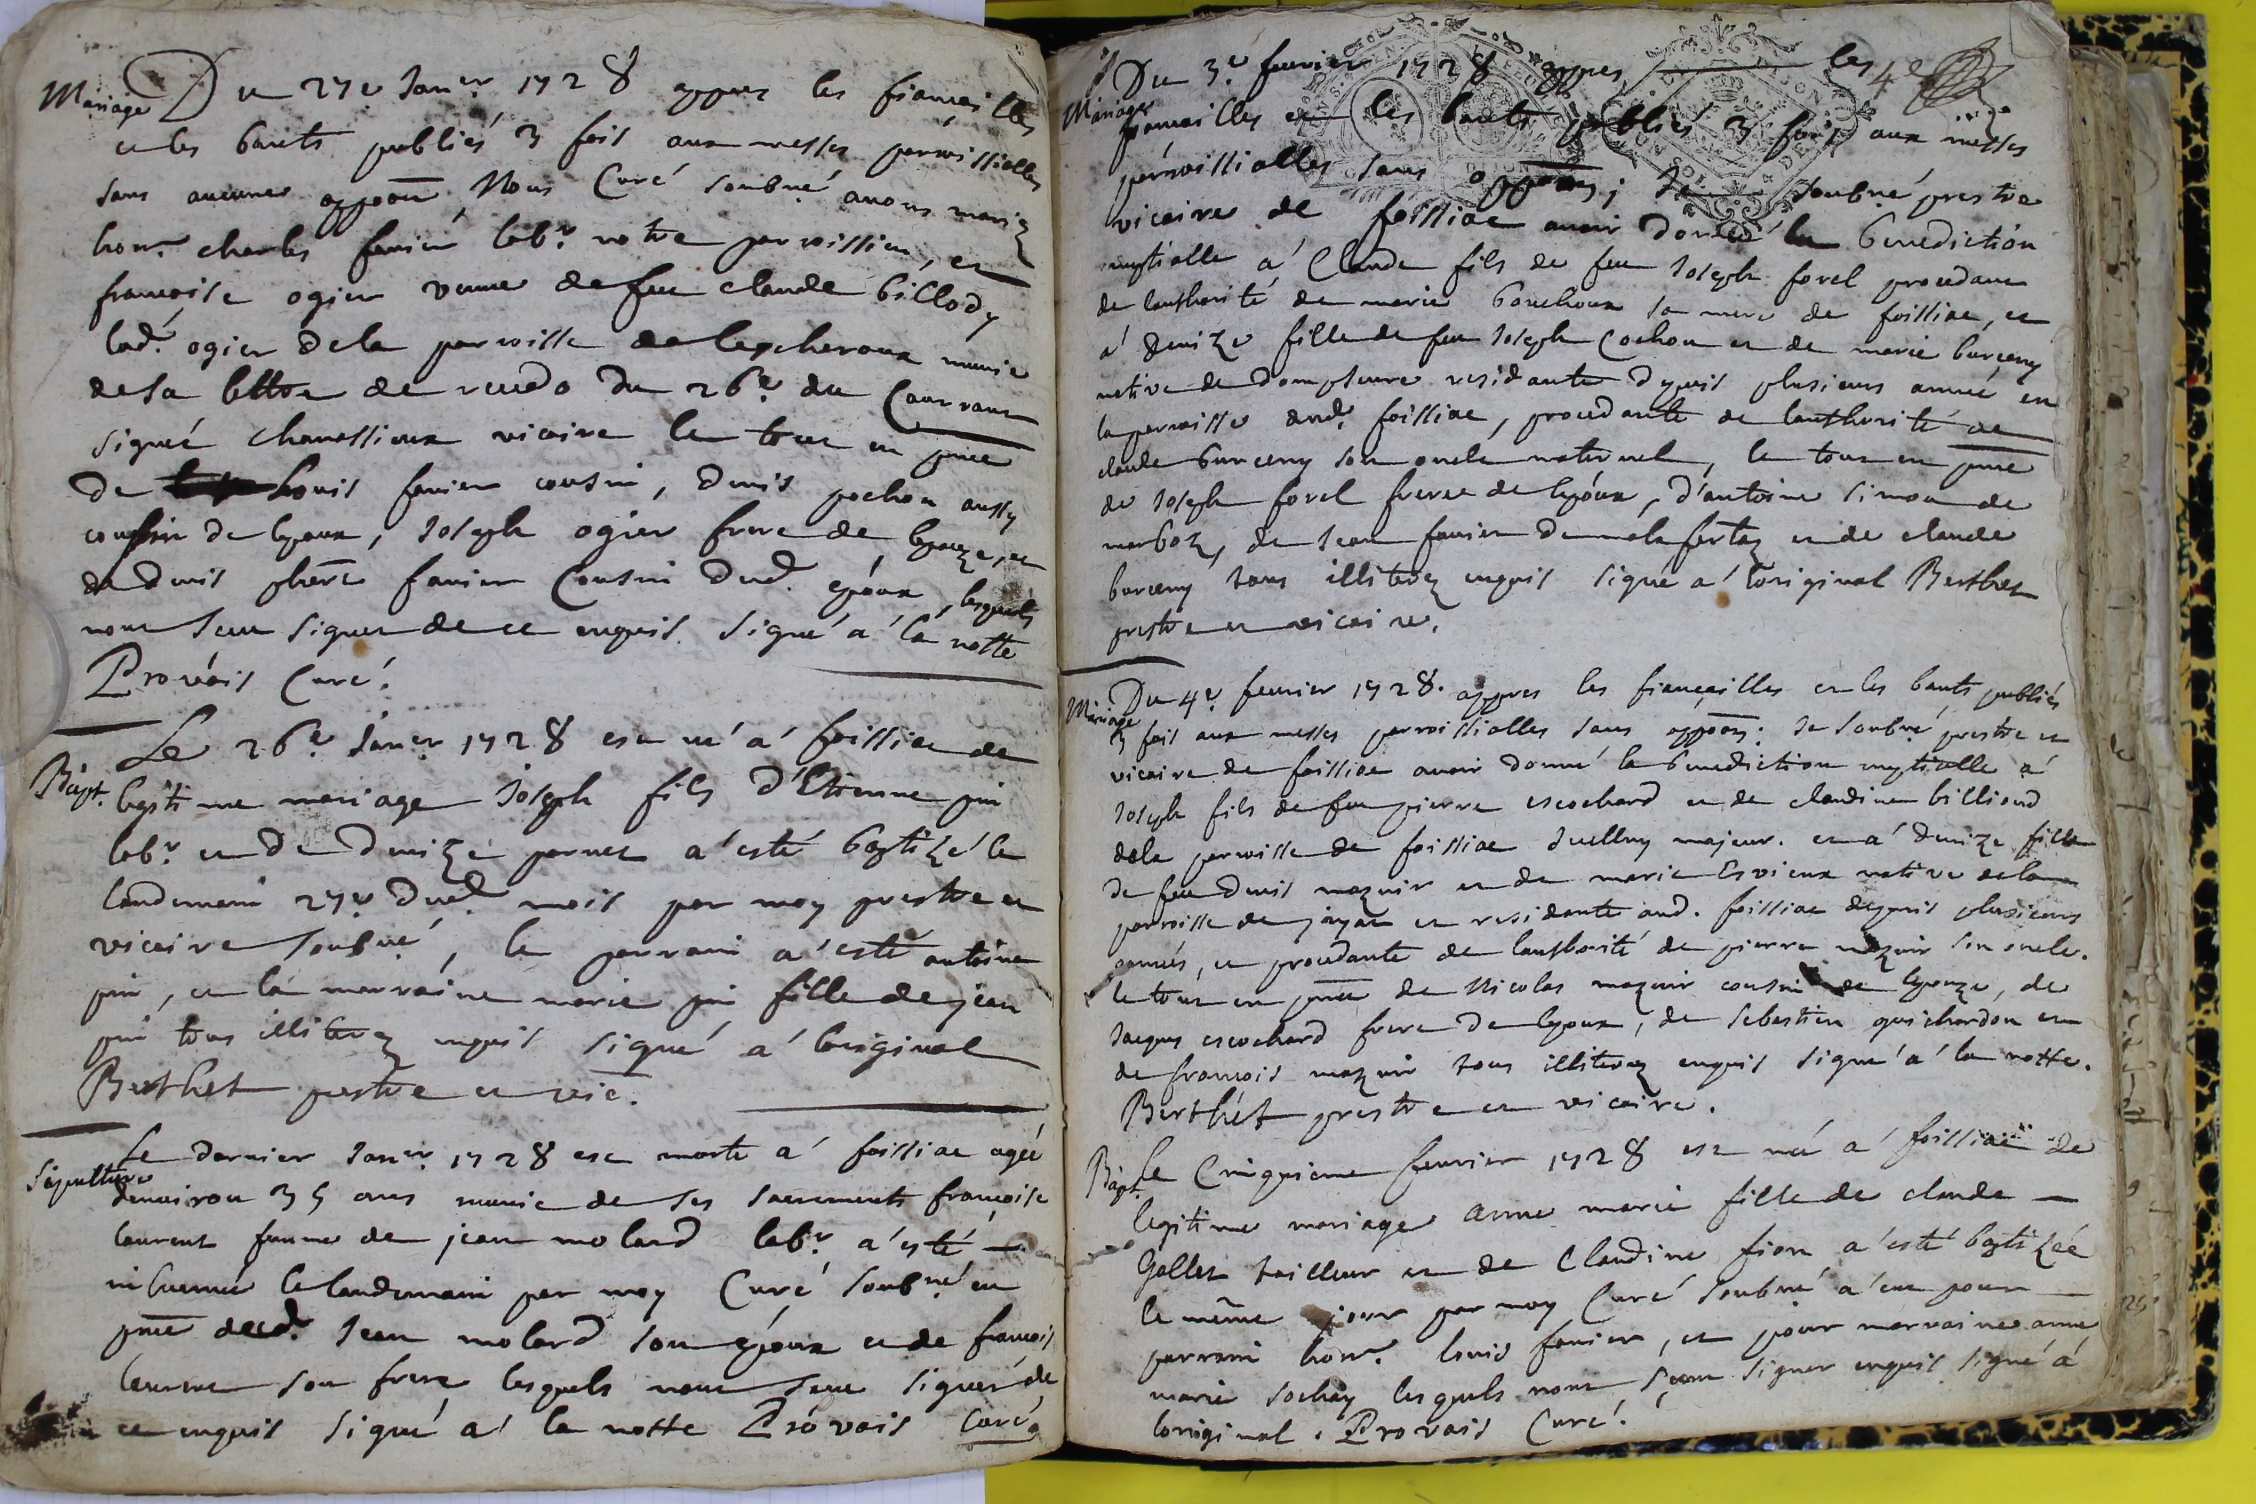 Mariage
Du 27e Janer. 1728 appres les fiançailles
et les bants publiés 3 fois aux messes parroissialles
sans aucune oppoôn Nous Curé soubné avons mariez
honr. charles favier labr. notre parroissien, et
françoise ogier veuve de feu claude billody
lad. ogier de la parroisse de lescheroux munie
de sa lettre de recedo du 26e. du Courrant
signée chanassieux vicaire le tout en pnce
de Louis favier cousin, denis pochon aussy
cousin de lepoux, Joseph ogier frere de lepouze, et
de denis favier Cousin dud. epoux, lesquels
nont sceu signer de ce enquis. signé a la notte
Provais Curé.
Bapt.
Le 26e Janer 1728 est né a foissiac de
legitime mariage Joseph fils d'Etienne pin
labr. et de denize parnet a esté baptizé le
landemain 27e dud. mois par moy prestre et
vicaire soubné, le parrain a esté antoine
pin, et la marraine marie pin fille de jean
pin tous illiterez enquis signé a loriginal
Berthet prestre et vic.
Sepulture
Le dernier Janer. 1728 est morte a foissiac agée
denviron 35 ans munie de ses sacrements françoise
laurent femme de jean molard labr. a esté
inhumée le landemain par moy Curé soubné en
pnce dud. Jean molard son epoux et de françois
laurent son frere lesquels nont sceu signer de
ce enquis signé a la notte Provais Curé
4e
Mariage
Du 3e. fevrier 1728 appres les
fiançailles et les bants publiés 3 fois aux messes
parroissialles sans oppoôn; Je soubné prestre
vicaire de foissiac avoir donné la benediction
nuptialle a Claude fils de feu Joseph forel procedant
de lauthorité de marie bouchoux sa mere de foissiac, et
a denize fille de feu Joseph Cochon et de marie burceny
native de dompsure residante depuis plusieurs année en
la parroisse dud. foissiac, procedante de lauthorité de
claude burceny son oncle maternel, le tout en pnce
de Joseph forel frere de lepoux, d'antoine simon de
marboz, de jean favier de malafertaz et de claude
burceny tous illiterez enquis signé a loriginal Berthet
prestre et vicaire.
Mariage
Du 4e. fevrier 1728. appres les fiançailles et les bants publiés
3 fois aux messes parroissialles sans oppoôn: Je soubné prestre et
vicaire de foissiac avoir donné la benediction nuptialle a
Joseph fils de feu pierre escochard et de claudine billioud
de la parroisse de foissiac majeur. et a denize fille
de feu denis mazuir et de marie Esvieux native de la
parroisse de jayat et residante aud. foissiac depuis plusieurs
années, et procedante de lauthorité de pierre mazuir son oncle.
le tout en pnce de Nicolas mazuir cousin de lepouze, de
Jacques escochard frere de lepoux, de sebastien guichardon et
de françois mazuir tous illiterez enquis signé a la notte.
Berthet prestre et vicaire.
Bapt.
Le Cinquieme fevrier 1728 est née a foissiac de
legitime mariage anne marie fille de claude
Gallet tailleur et de Claudine fion a esté baptizée
le même jour par moy Curé soubné a eu pour
parrain honr. louis favier, et pour marraine anne
marie sochay lesquels nont sceu signer enquis signé a
loriginal. Provais Curé.